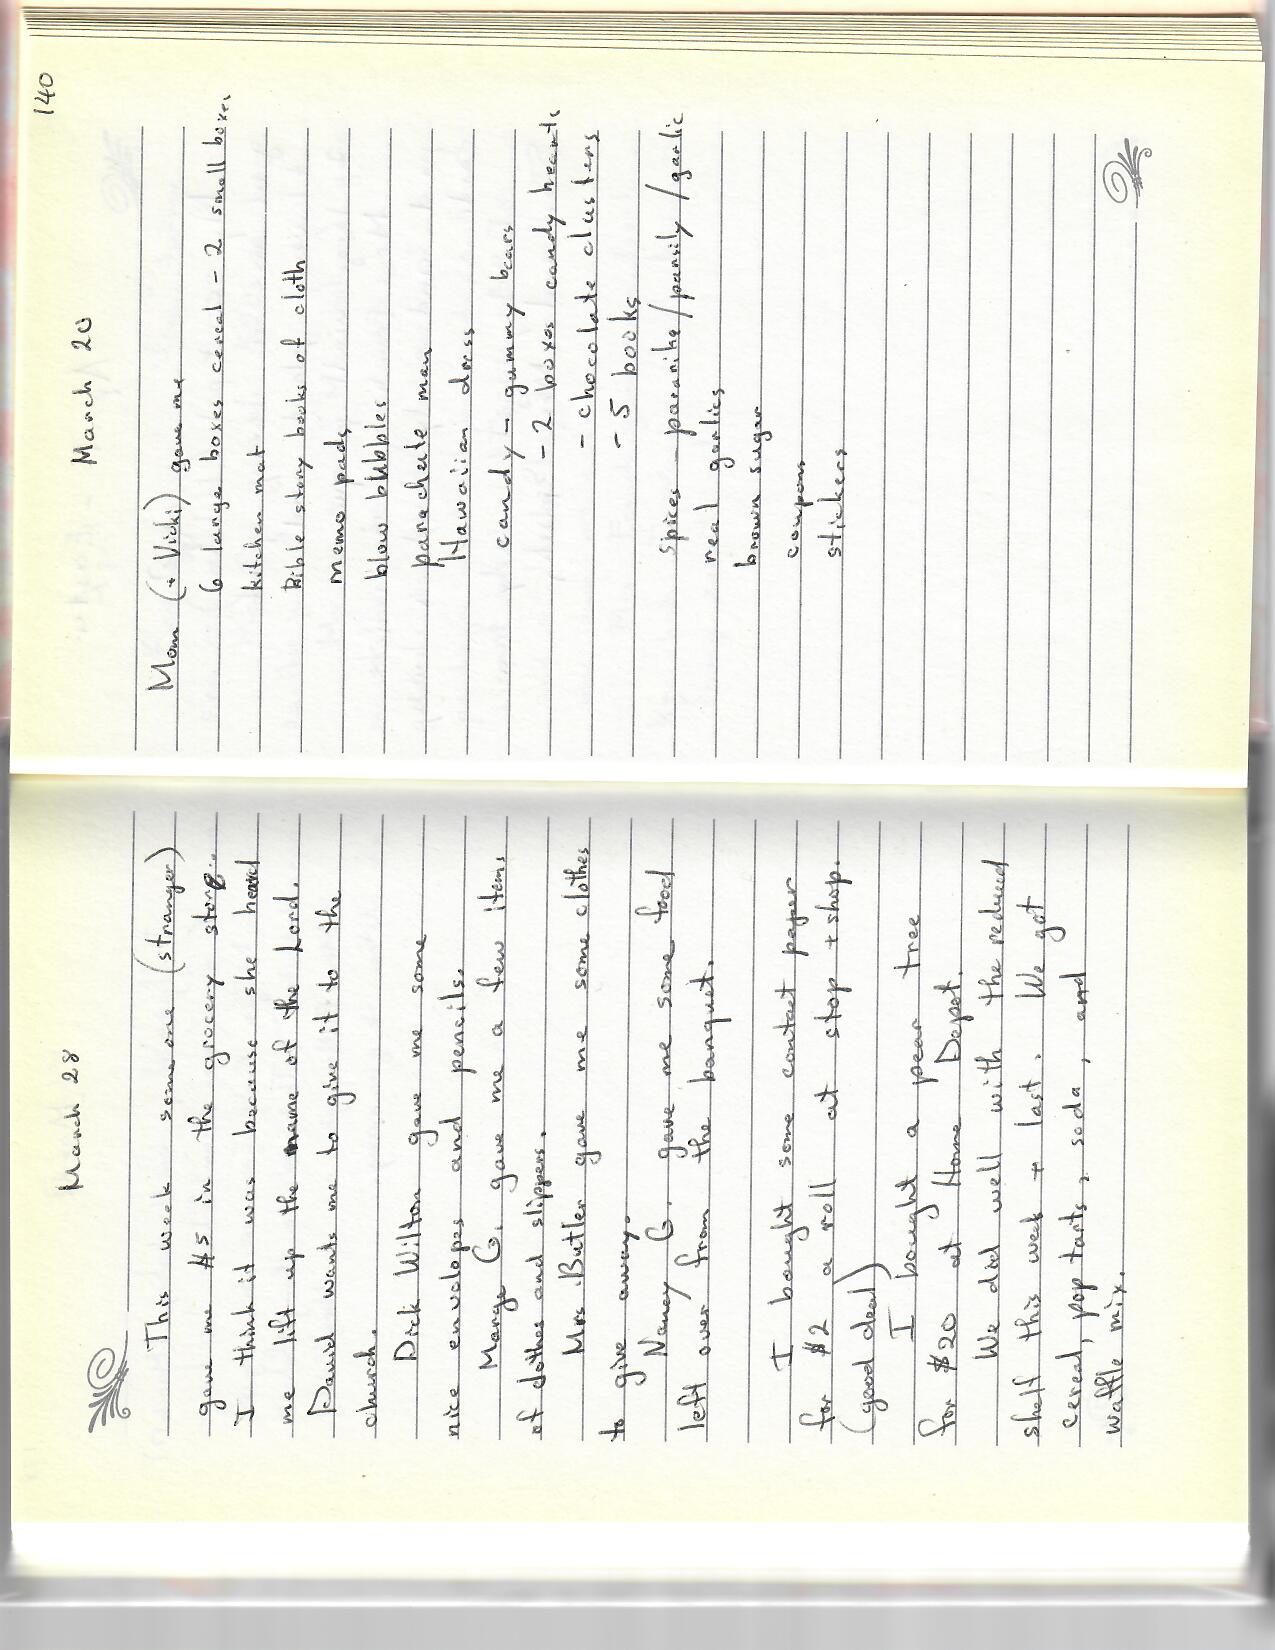 March 28
This week some one (stranger)
gave me $5 in the grocery store.
I think it was because she heard
me lift up the name of the Lord.
David wants me to give it to the
church.
Dick Wilton gave me some
nice envelopes and pencils.
Marge G. gave me a few items
of clothes and slippers.
Mrs. Butler gave me some clothes
to give away.
Nancy G. gave me some food
left over from the banquit.
I bought some contact paper
for $2 a roll at stop + shop.
(good deal)
I bought a pear tree
for $20 at Home Depot.
We did well with the reduced
shelf this week + last. We got
cereal, pop tarts, soda, and
waffle mix.
140
March 20
Mom (+ Vicki) gave me
6 large boxes cereal - 2 small boxes
kitchen mat
Bible story books of cloth
memo pads
blow bubbles
parachute man
Hawaiian dress
candy - gummy bears
- 2 boxes candy hearts
- chocolate clusters
- 5 books
spices - paranika / parsily / garlic
real garlics
brown sugar
coupons
stickers